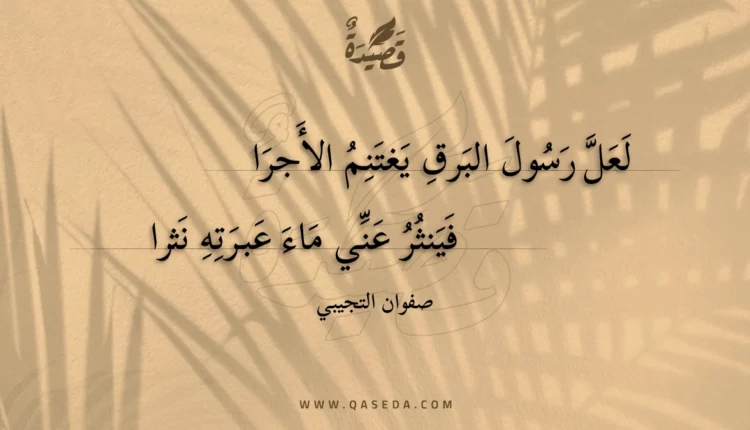 قَصِيدَةٌ
لَعَلَّ رَسُولَ البَرقِ يَغتَنِمُ الأَجرَا
فَيَنثُرُ عَنِّي مَاءَ عَبرَتِهِ نَثرا
صفوان التجيبي
WWW.QASEDA.COM